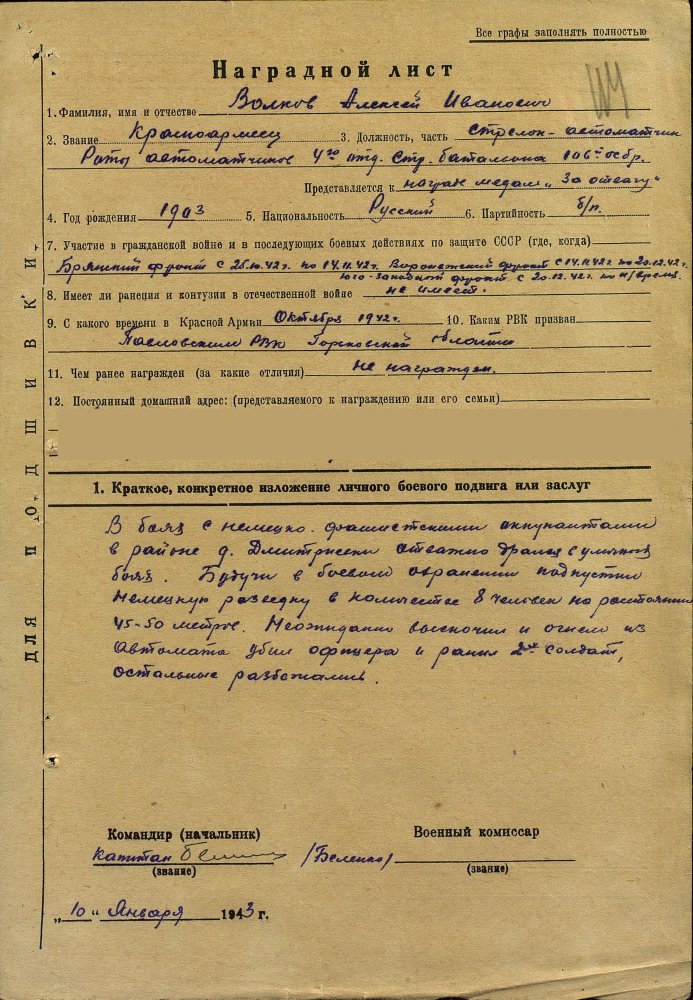 Все графы заполнять полностью
Наградной лист
1. Фамилия, имя и отчество Волков Алексей Иванович
2. Звание Красноармеец 3. Должность, часть стрелок-автоматчик
Роты автоматчиков 4го отд. стр. батальона 106й осбр.
Представляется к награж медали "За отвагу"
4. Год рождения 1903 5. Национальность Русский 6. Партийность б/п.
7. Участие в гражданской войне и в последующих боевых действиях по защите СССР (где, когда)
Брянский фронт с 25.10.42г. по 14.11.42г. Воронежский фронт с 14.11.42г по 20.12.42г.
юго-западный фронт с 20.12.42г. по н/время.
8. Имеет ли ранения и контузии в отечественной войне не имеет.
9. С какого времени в Красной Армии Октября 1942г. 10. Каким РВК призван
РВК Горьковской области
11. Чем ранее награжден (за какие отличия) не награжден.
12. Постоянный домашний адрес: (представляемого к награждению или его семьи)
1. Краткое, конкретное изложение личного боевого подвига или заслуг
В боях с немецко-фашистскими оккупантами
в районе д. отважно дрался в уличных
боях. Будучи в боевом охранении подпустил
Немецкую разведку в количестве 8 человек на расстояние
45-50 метров. Неожиданно выскочил и огнем из
Автомата убил офицера и ранил 2х солдат,
остальные разбежались.
Командир (начальник) Военный комиссар
капитан /Беленко/
(звание) (звание)
„10" Января 1943 г.
ДЛЯ ПОДШИВКИ